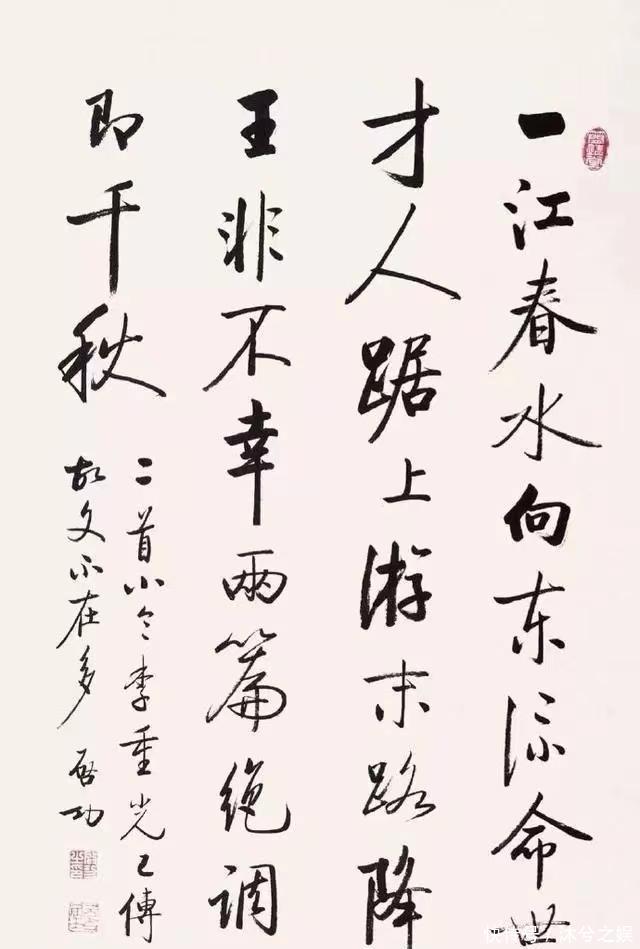 一江春水向东流命世
才人踞上游末路降
王非不幸兩篇绝调
即千秋
二首小令李重光已傳
故文不在多 启功
快传号/沐兮之娱